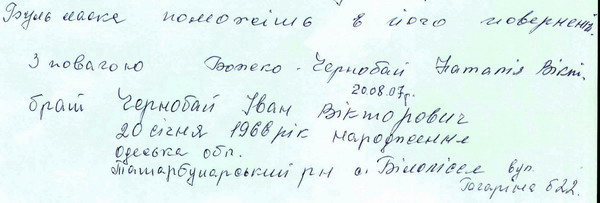 Будь ласка поможіть в його повернені.
З повагою Божеко - Чернобай Наталія Вікт.
20.08.07р.
брат Чернобай Іван Вікторович
20 січня 1968 рік народження
Одеська обл.
Татарбунарський рн с. Білолісся вул.
Гагаріна б 22.